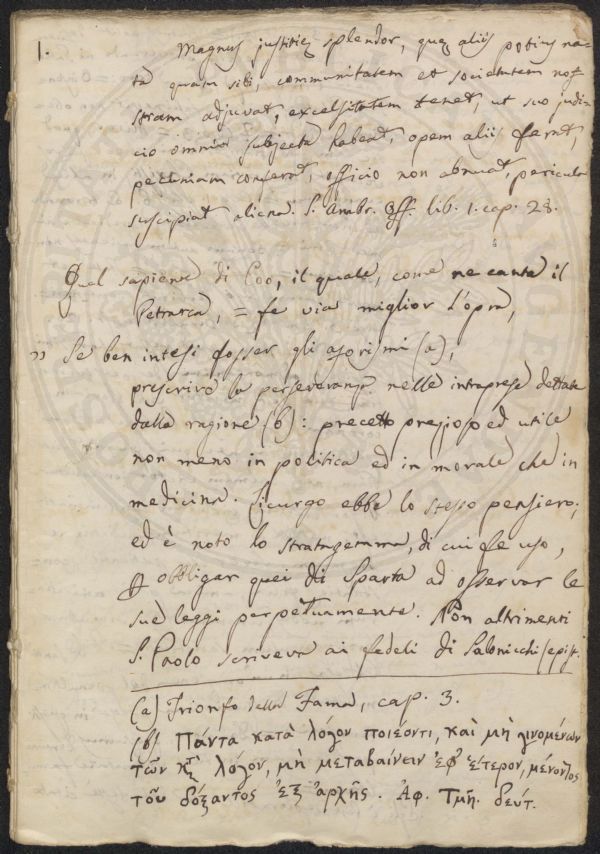 1.
Magnus justitię splendor, quę aliis potius na-
ta quam sibi, communitatem et societatem nos-
tram adjuvat, excelsitatem tenet, ut suo judi-
cio omnia subjecta habeat, opem aliis ferat,
pecuniam conferat, officio non abnuat, pericula
suscipiat aliena. S. Ambr. Off. lib. 1. cap. 28.
Quel sapiente di Coo, il quale, come ne canta il
Petrarca, = fe via miglior l'opra,
" Se ben intesi fosser gli aforismi (a),
prescrive la perseveranza nelle intraprese dettate
dalla ragione (b): precetto prezioso ed utile
non meno in politica ed in morale che in
medicina. Licurgo ebbe lo stesso pensiero;
ed è noto lo stratagemma, di cui fe uso,
obbligar quei di Sparta ad osservar le
sue leggi perpetuamente. Non altrimenti
S. Paolo scriveva ai fedeli di Salonicchi (epist.
(a) Trionfo della Fama, cap. 3.
(b) Πάντα κατὰ λόγον ποιέοντι, καὶ μὴ γινομένων
τῶν κτ λόγον, μὴ μεταβαίνειν ἐφ' ἕτερον, μένοντος
τοῦ δόξαντος ἐξ ἀρχῆς. Ἀφ. Τμη. δεύτ.